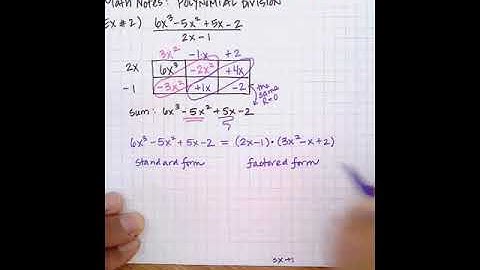 Math Notes: POLYNOMIAL DIVISION
Ex #2) 6x³-5x²+5x-2
2x-1
3x² -1x +2
2x 6x³ -2x² +4x
-1 -3x² +1x -2
the same R=0
sum: 6x³-5x²+5x-2
5
6x³-5x²+5x-2 = (2x-1)·(3x²-x+2)
standard form factored form